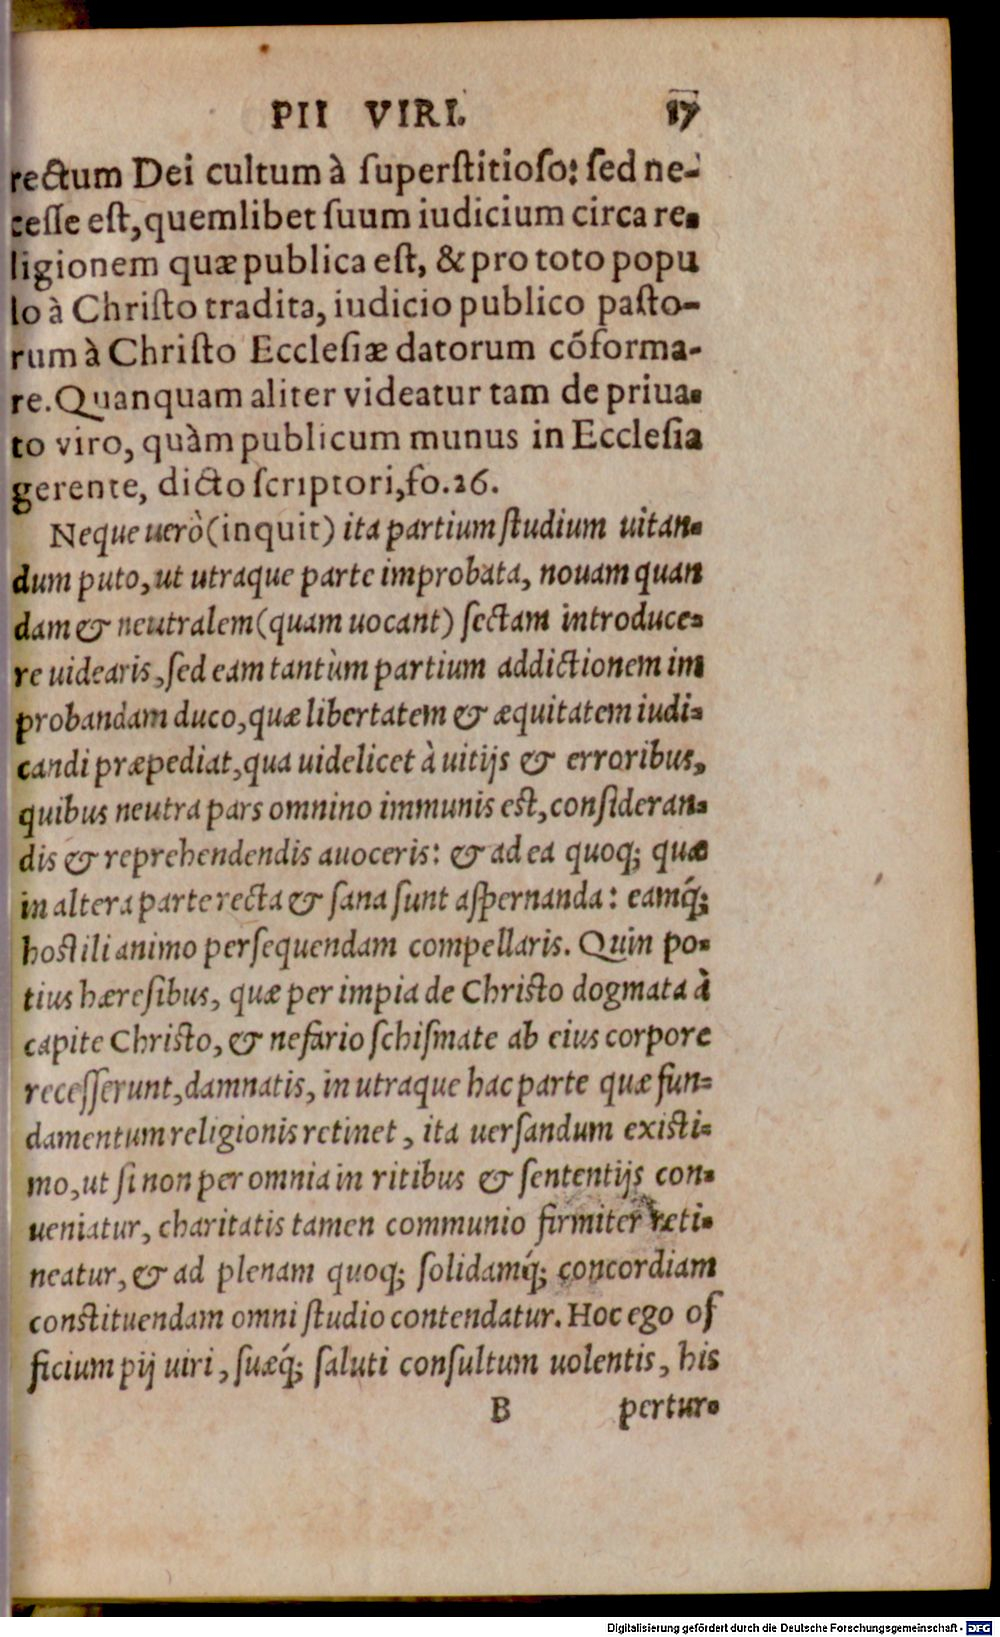 PII VIRI. 17
rectum Dei cultum à ſuperſtitioſo: ſed ne-
ceſſe eſt, quemlibet ſuum iudicium circa re-
ligionem quæ publica eſt, & pro toto popu
lo à Chriſto tradita, iudicio publico paſto-
rum à Chriſto Eccleſiæ datorum cõforma-
re. Quanquam aliter videatur tam de priua-
to viro, quàm publicum munus in Eccleſia
gerente, dicto ſcriptori, fo. 26.
Neque uerò (inquit) ita partium ſtudium uitan-
dum puto, ut utraque parte improbata, nouam quan
dam & neutralem (quam uocant) ſectam introduce-
re uidearis, ſed eam tantùm partium addictionem im
probandam duco, quæ libertatem & æquitatem iudi-
candi præpediat, qua uidelicet à uitijs & erroribus,
quibus neutra pars omnino immunis eſt, conſideran-
dis & reprehendendis auoceris: & ad ea quoq; quæ
in altera parte recta & ſana ſunt aſpernanda: eamq́;
hoſtili animo perſequendam compellaris. Quin po-
tius hæreſibus, quæ per impia de Chriſto dogmata à
capite Chriſto, & nefario ſchiſmate ab eius corpore
receſſerunt, damnatis, in utraque hac parte quæ fun-
damentum religionis retinet, ita uerſandum exiſti-
mo, ut ſi non per omnia in ritibus & ſententijs con-
ueniatur, charitatis tamen communio firmiter reti-
neatur, & ad plenam quoq; ſolidamq́; concordiam
conſtituendam omni ſtudio contendatur. Hoc ego of
ficium pij uiri, ſuæq́; ſaluti conſultum uolentis, his
B pertur-
Digitalisierung gefördert durch die Deutsche Forschungsgemeinschaft - DFG